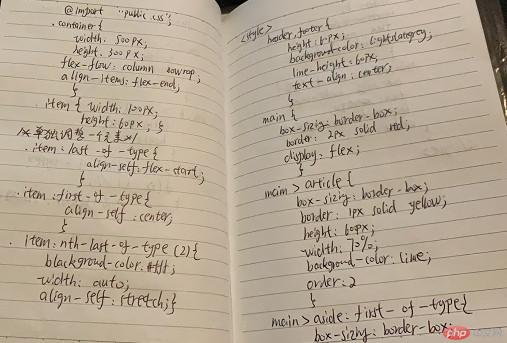 @import "public.css";
.container{
width: 500px;
height: 300px;
flex-flow: column
align-items: flex-end;
}
.item { width: 100px;
height: 60px; }
/*单独调整一个元素*/
.item:last-of-type{
align-self: flex-start;
}
.item:first-of-type{
align-self: center;
}
.item:nth-last-of-type(2){
blackground-color:
width: auto;
align-self: stretch;}
<style>
header, footer{
height: 60px;
background-color: lightslategrey;
line-height: 60px;
text-align: center;
}
main{
box-sizing: border-box;
border: 2px solid red;
display: flex;
}
main > article {
box-sizing: border-box;
border: 1px solid yellow;
height: 600px;
width: 70%;
background-color: lime;
order: 2
}
main > aside: first-of-type{
box-sizing: border-box;
php